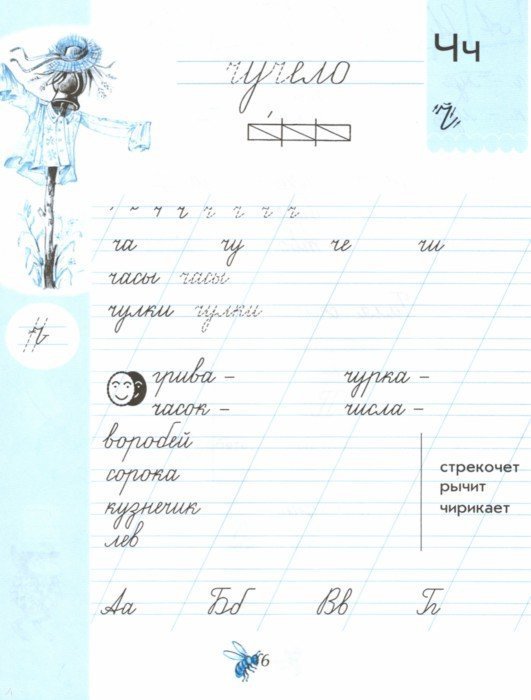 Чч
чучело
ч
ча чу че чи
часы часы
чулки чулки
ч
грива – чурка –
часок – числа –
воробей
сорока
кузнечик
лев
стрекочет
рычит
чирикает
Аа Бб Вв Г
6